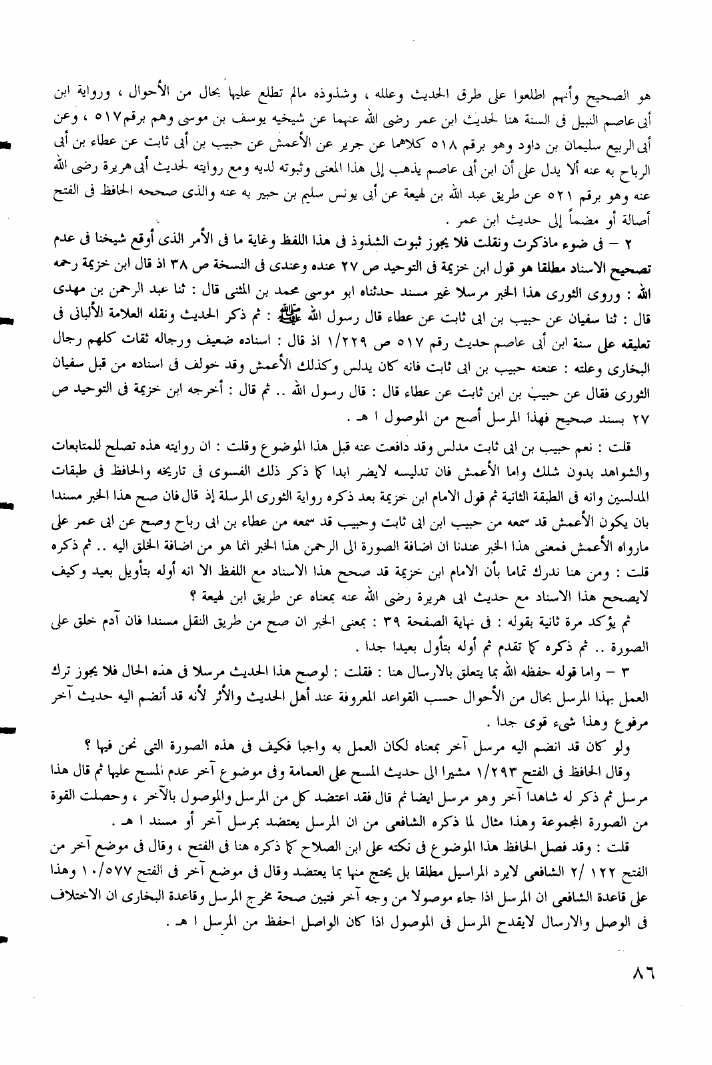 هو الصحيح وأنهم اطلعوا على طرق الحديث وعلله ، وشذوذه مالم تطلع عليها بحال من الأحوال ، ورواية ابن
أبى عاصم النبيل فى السنة هنا لحديث ابن عمر رضى الله عنهما عن شيخيه يوسف بن موسى وهم برقم ٥١٧ ، وعن
أبى الربيع سليمان بن داود وهو برقم ٥١٨ كلاهما عن جرير عن الأعمش عن حبيب بن أبى ثابت عن عطاء بن أبى
الرباح به عنه ألا يدل على أن ابن أبى عاصم يذهب إلى هذا المعنى وثبوته لديه ومع روايته لحديث أبى هريرة رضى الله
عنه وهو برقم ٥٢١ عن طريق عبد الله بن لهيعة عن أبى يونس سليم بن حبير به عنه والذى صححه الحافظ فى الفتح
أصالة أو مضماً إلى حديث ابن عمر .
٢ – فى ضوء ماذكرت ونقلت فلا يجوز ثبوت الشذوذ فى هذا اللفظ وغاية ما فى الأمر الذى أوقع شيخنا فى عدم
تصحيح الاسناد مطلقا هو قول ابن خزيمة فى التوحيد ص ٢٧ عنده وعندى فى النسخة ص ٣٨ اذ قال ابن خزيمة رحمه
الله : وروى الثورى هذا الخبر مرسلا غير مسند حدثناه ابو موسى محمد بن المثنى قال : ثنا عبد الرحمن بن مهدى
قال : ثنا سفيان عن حبيب بن ابى ثابت عن عطاء قال رسول الله ﷺ : ثم ذكر الحديث ونقله العلامة الألبانى فى
تعليقه على سنة ابن أبى عاصم حديث رقم ٥١٧ ص ١/٢٢٩ اذ قال : اسناده ضعيف ورجاله ثقات كلهم رجال
البخارى وعلته : عنعنه حبيب بن ابى ثابت فانه كان يدلس وكذلك الأعمش وقد خولف فى اسناده من قبل سفيان
الثورى فقال عن حبيب بن ابن ثابت عن عطاء قال : قال رسول الله .. ثم قال : أخرجه ابن خزيمة فى التوحيد ص
٢٧ بسند صحيح فهذا المرسل أصح من الموصول ا هـ .
قلت : نعم حبيب بن ابى ثابت مدلس وقد دافعت عنه قبل هذا الموضوع وقلت : ان روايته هذه تصلح للمتابعات
والشواهد بدون شلك واما الأعمش فان تدليسه لايضر ابدا كما ذكر ذلك الفسوى فى تاريخه والحافظ فى طبقات
المدلسين وانه فى الطبقة الثانية ثم قول الامام ابن خزيمة بعد ذكره رواية الثورى المرسلة إذ قال فان صح هذا الخبر مسندا
بان يكون الأعمش قد سمعه من حبيب ابن ابى ثابت وحبيب قد سمعه من عطاء بن ابى رباح وصح عن ابى عمر على
مارواه الأعمش فمعنى هذا الخبر عندنا ان اضافة الصورة الى الرحمن هذا الخبر انما هو من اضافة الخلق اليه .. ثم ذكره
قلت : ومن هنا ندرك تماما بأن الامام ابن خزيمة قد صحح هذا الاسناد مع اللفظ الا انه أوله بتأويل بعيد وكيف
لايصحح هذا الاسناد مع حديث ابى هريرة رضى الله عنه بمعناه عن طريق ابن لهيعة ؟
ثم يؤكد مرة ثانية بقوله : فى نهاية الصفحة ٣٩ : بمعنى الخبر ان صح من طريق النقل مسندا فان آدم خلق على
الصورة .. ثم ذكره كما تقدم ثم أوله بتأول بعيدا جدا .
٣ – واما قوله حفظه الله بما يتعلق بالارسال هنا : فقلت : لوصح هذا الحديث مرسلا فى هذه الحال فلا يجوز ترك
العمل بهذا المرسل بحال من الأحوال حسب القواعد المعروفة عند أهل الحديث والأثر لأنه قد أنضم اليه حديث آخر
مرفوع وهذا شىء قوى جدا .
ولو كان قد انضم اليه مرسل آخر بمعناه لكان العمل به واجبا فكيف فى هذه الصورة التى نحن فيها ؟
وقال الحافظ فى الفتح ١/٢٩٣ مشيرا الى حديث المسح على العمامة وفى موضوع آخر عدم المسح عليها ثم قال هذا
مرسل ثم ذكر له شاهدا آخر وهو مرسل ايضا ثم قال فقد اعتضد كل من المرسل والموصول بالآخر ، وحصلت القوة
من الصورة المجموعة وهذا مثال لما ذكره الشافعى من ان المرسل يعتضد بمرسل آخر أو مسند ا هـ .
قلت : وقد فصل الحافظ هذا الموضوع فى نكته على ابن الصلاح كما ذكره هنا فى الفتح ، وقال فى موضع آخر من
الفتح ١٢٢ /٢ الشافعى لايرد المراسيل مطلقا بل يحتج منها بما يعتضد وقال فى موضع آخر فى الفتح ١٠/٥٧٧ وهذا
على قاعدة الشافعى ان المرسل اذا جاء موصولا من وجه آخر فتبين صحة مخرج المرسل وقاعدة البخارى ان الاختلاف
فى الوصل والارسال لايقدح المرسل فى الموصول اذا كان الواصل احفظ من المرسل ا هـ .
٨٦